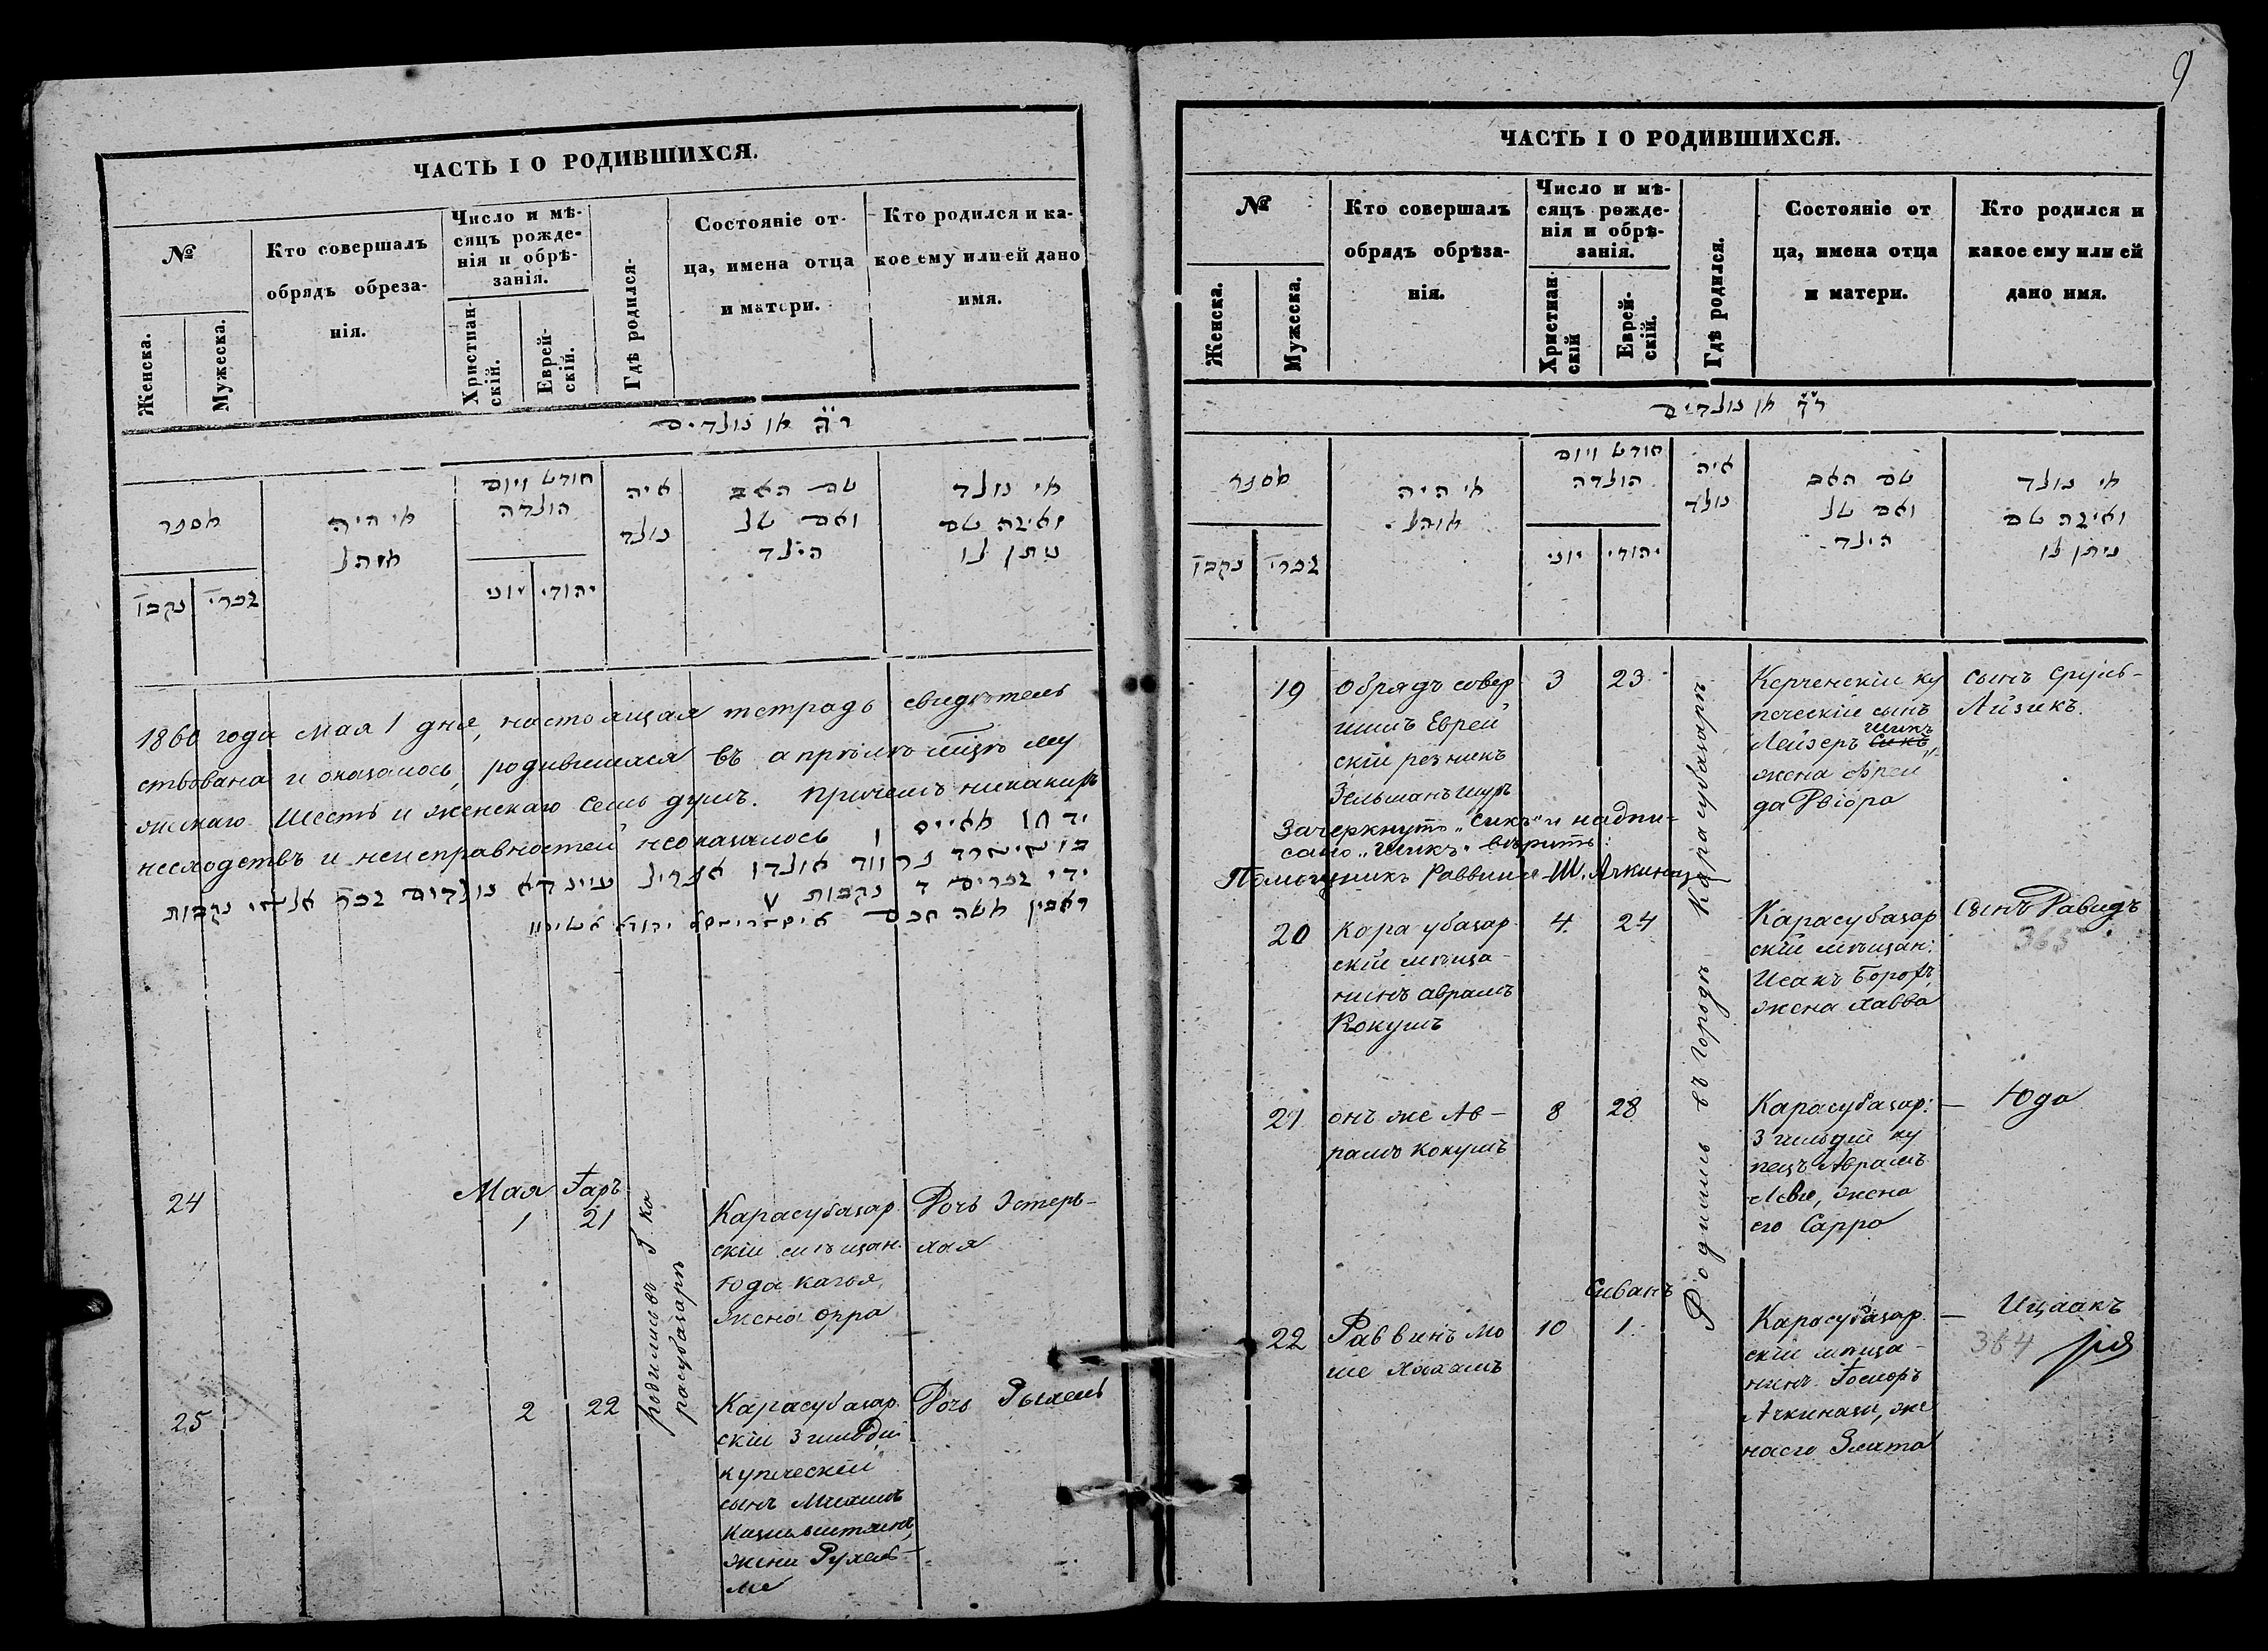 ЧАСТЬ I О РОДИВШИХСЯ.
№
Женска.
Мужеска.
Кто совершалъ
обрядъ обреза-
нія.
Число и мѣ-
сяцъ рожде-
нія и обрѣ-
занія.
Христиан-
скій.
Еврей-
скій.
Гдѣ родился.
Состояніе от-
ца, имена отца
и матери.
Кто родился и ка-
кое ему или ей дано
имя.
נולדים
מספר
נקבו זכרי
מי היה
מוהל
חודש ויום
הולדה
יוני יהודי
איה
נולד
שם האב
ואם של
הילד
מי נולד
ואיזה שם
ניתן לו
1860 года Мая 1 дня, настоящая тетрадь свидѣтель
ствована и оказалось, родившихся въ апрѣлѣ мцѣ му
жскаго шесть и женскаго семь душъ. Причемъ никакихъ
несходствъ и неисправностей неоказалось
24
Мая Iаръ
1 21
родились въ Г. Ка
расубазарѣ
Карасубазар
скій мѣщан.
Юда Кагья,
жена Орра
Дочь Эстеръ-
хая
25
2 22
Карасубазар.
скій 3 гильдіи
купеческій
сынъ
жена Рухель
Дочь Рыхель
9
ЧАСТЬ I О РОДИВШИХСЯ.
№
Женска.
Мужеска.
Кто совершалъ
обрядъ обрѣза-
нія.
Число и мѣ-
сяцъ рожде-
нія и обрѣ-
занія.
Христиан-
скій
Еврей-
скій.
Гдѣ родился.
Состояніе от
ца, имена отца
и матери.
Кто родился и
какое ему или ей
дано имя.
נולדים
מספר
נקבו זכרי
מי היה
מוהל
חודש ויום
הולדה
יוני יהודי
איה
נולד
שם האב
ואם של
הילד
מי נולד
ואיזה שם
ניתן לו
19
Обрядъ совер
шилъ Еврей
скій резникъ
Зельманъ Шуръ
3 23
Родились въ городѣ Карасубазарѣ
Керченскій ку
печескій сынъ
Шикъ
Лейзеръ Сикъ,
жена Фрей
да Двіора
сынъ Сруль-
Айзикъ.
Зачеркнуто „Сикъ" и надпи-
сано „Шикъ" вѣрить:
Помощникъ Раввина Ш. Ачкинази
20
Карасубазар
скій мѣща-
нинъ Аврамъ
Кокушъ
4 24
Карасубазар
скій мѣщан:
Исакъ Борохъ,
жена Хавва
Сынъ Давидъ
365
21
онъ же Ав-
рамъ Кокушъ
8 28
Карасубазар:
3 гильдіи ку
пецъ Аврамъ
Леви, жена
его Сарра
— Юда
22
Раввинъ Мо
ше Хахамъ
10
Сиванъ
1
Карасубазар.
скій мѣща-
нинъ Іосифъ
Ачкинази, же
на его Злата
— Ицаакъ
364